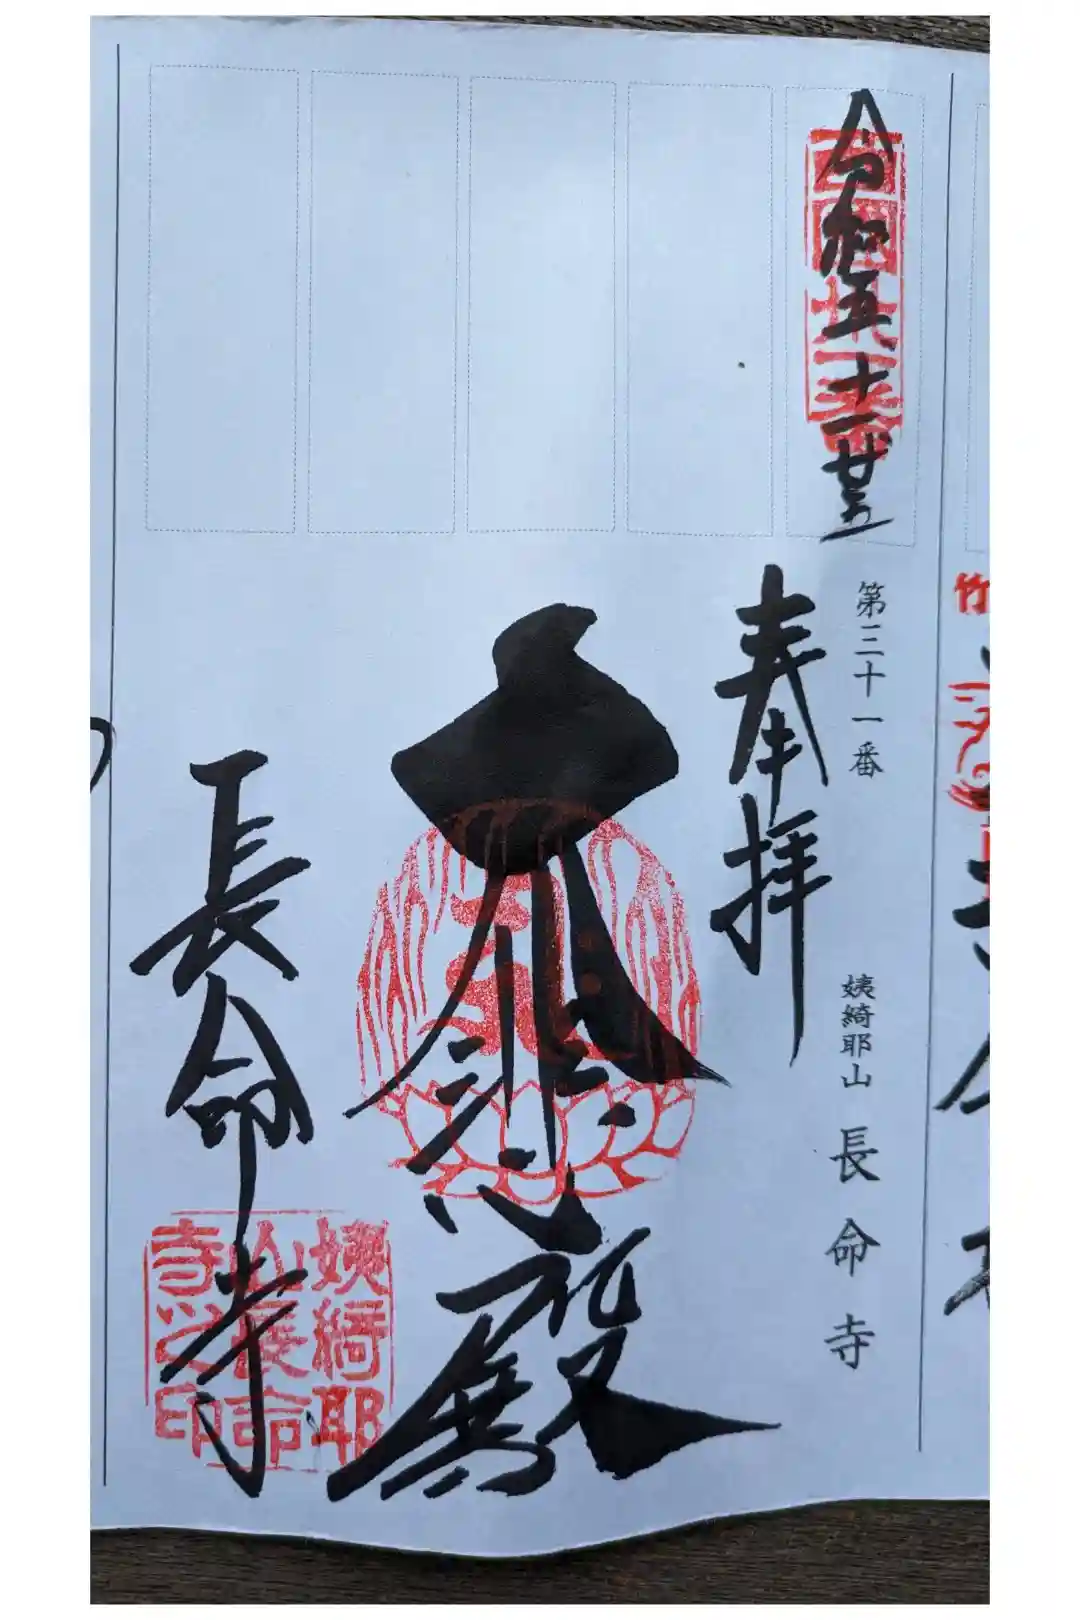 令和五 十一 廿三
西國
第三十一番
姨綺耶山 長命寺
奉拝
大悲殿
長命寺
姨綺耶
山長命
寺之印
竹